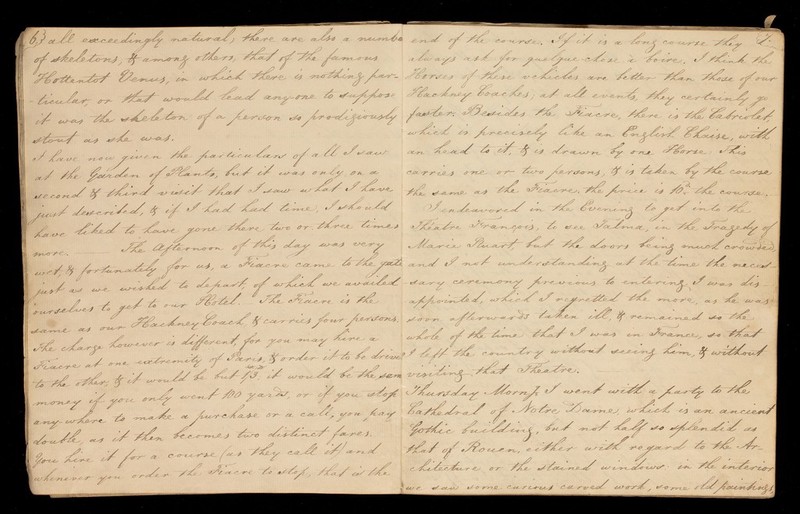 63
all exceedingly natural; there are also a number
of skeletons, & among others, that of the famous
Hottentot Venus, in which there is nothing par-
ticular, or that would lead any-one to suppose
it was the skeleton of a person so prodigiously
stout as she was.
I have now given the particulars of all I saw
at the Garden of Plants, but it was only on a
second & third visit that I saw what I have
just described, & if I had had time, I should
have liked to have gone there two or three times
more. The Afternoon of this day was very
wet, & fortunately for us, a Fiacre came to the gate
just as we wished to depart, of which we availed
ourselves to get to our Hotel. The Fiacre is the
same as our Hackney Coach, & carries four persons.
The charge however is different, for you may hire a
Fiacre at one extremity of Paris, & order it to be driven
to the other, & it would be but 1/3, it would be the same
money if you only went 100 yards, or if you stop
any where to make a purchase or a call, you pay
double, as it then becomes two distinct fares.
You hire it for a course (as they call it) and
whenever you order the Fiacre to stop, that is the
end of the course. If it is a long course they
always ask for quelque chose à boire. I think the
Horses of these vehicles are better than those of our
Hackney Coaches; at all events, they certainly go
faster. Besides the Fiacre, there is the Cabriolet,
which is precisely like an English Chaise, with
an head to it, & is drawn by one Horse. This
carries one or two persons, & is taken by the course
the same as the Fiacre, the price is 10d the course.
I endeavored in the Evening to get into the
Théatre François, to see Talma, in the Tragedy of
Marie Stuart, but the doors being much crowded
and I not understanding at the time the neces-
sary ceremony previous to entering, I was dis-
appointed, which I regretted the more, as he was
soon afterwards taken ill, & remained so the
whole of the time that I was in France, so that
I left the country without seeing him, & without
visiting that Theatre.
Thursday Morng I went with a party to the
Cathedral of Notre Dame, which is an ancient
Gothic building, but not half so splendid as
that of Rouen, either with regard to the Ar-
chitecture or the stained windows. in the interior
we saw some curious carved work, some old paintings,